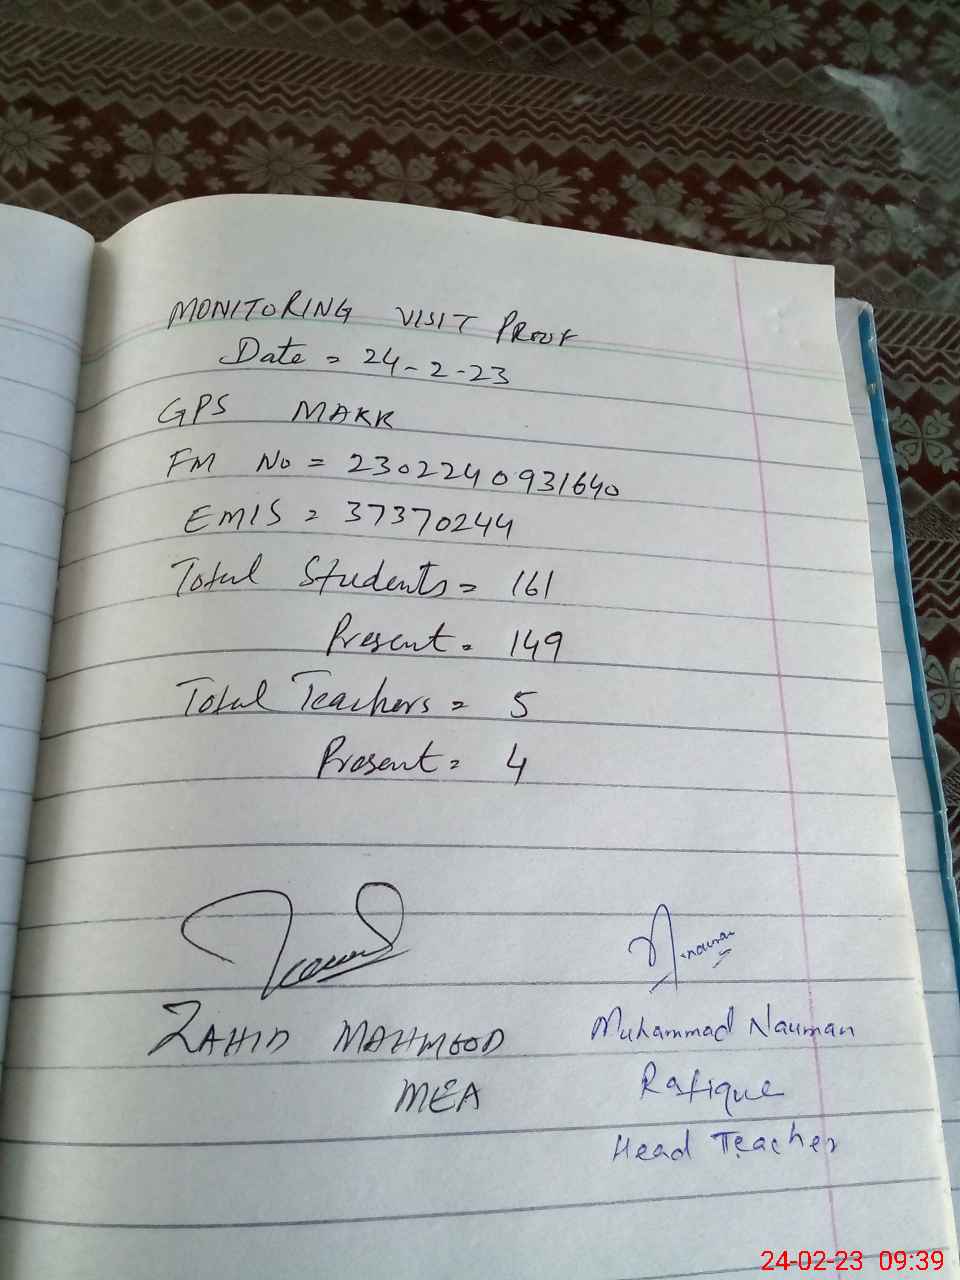 MONITORING VISIT PROOF
Date = 24-2-23
GPS MAKK
FM No = 2302240931640
EMIS = 37370244
Total Students = 161
Present = 149
Total Teachers = 5
Present = 4
ZAHID MAHMOOD
MEA
Muhammad Nauman
Rafique
Head Teacher
24-02-23 09:39